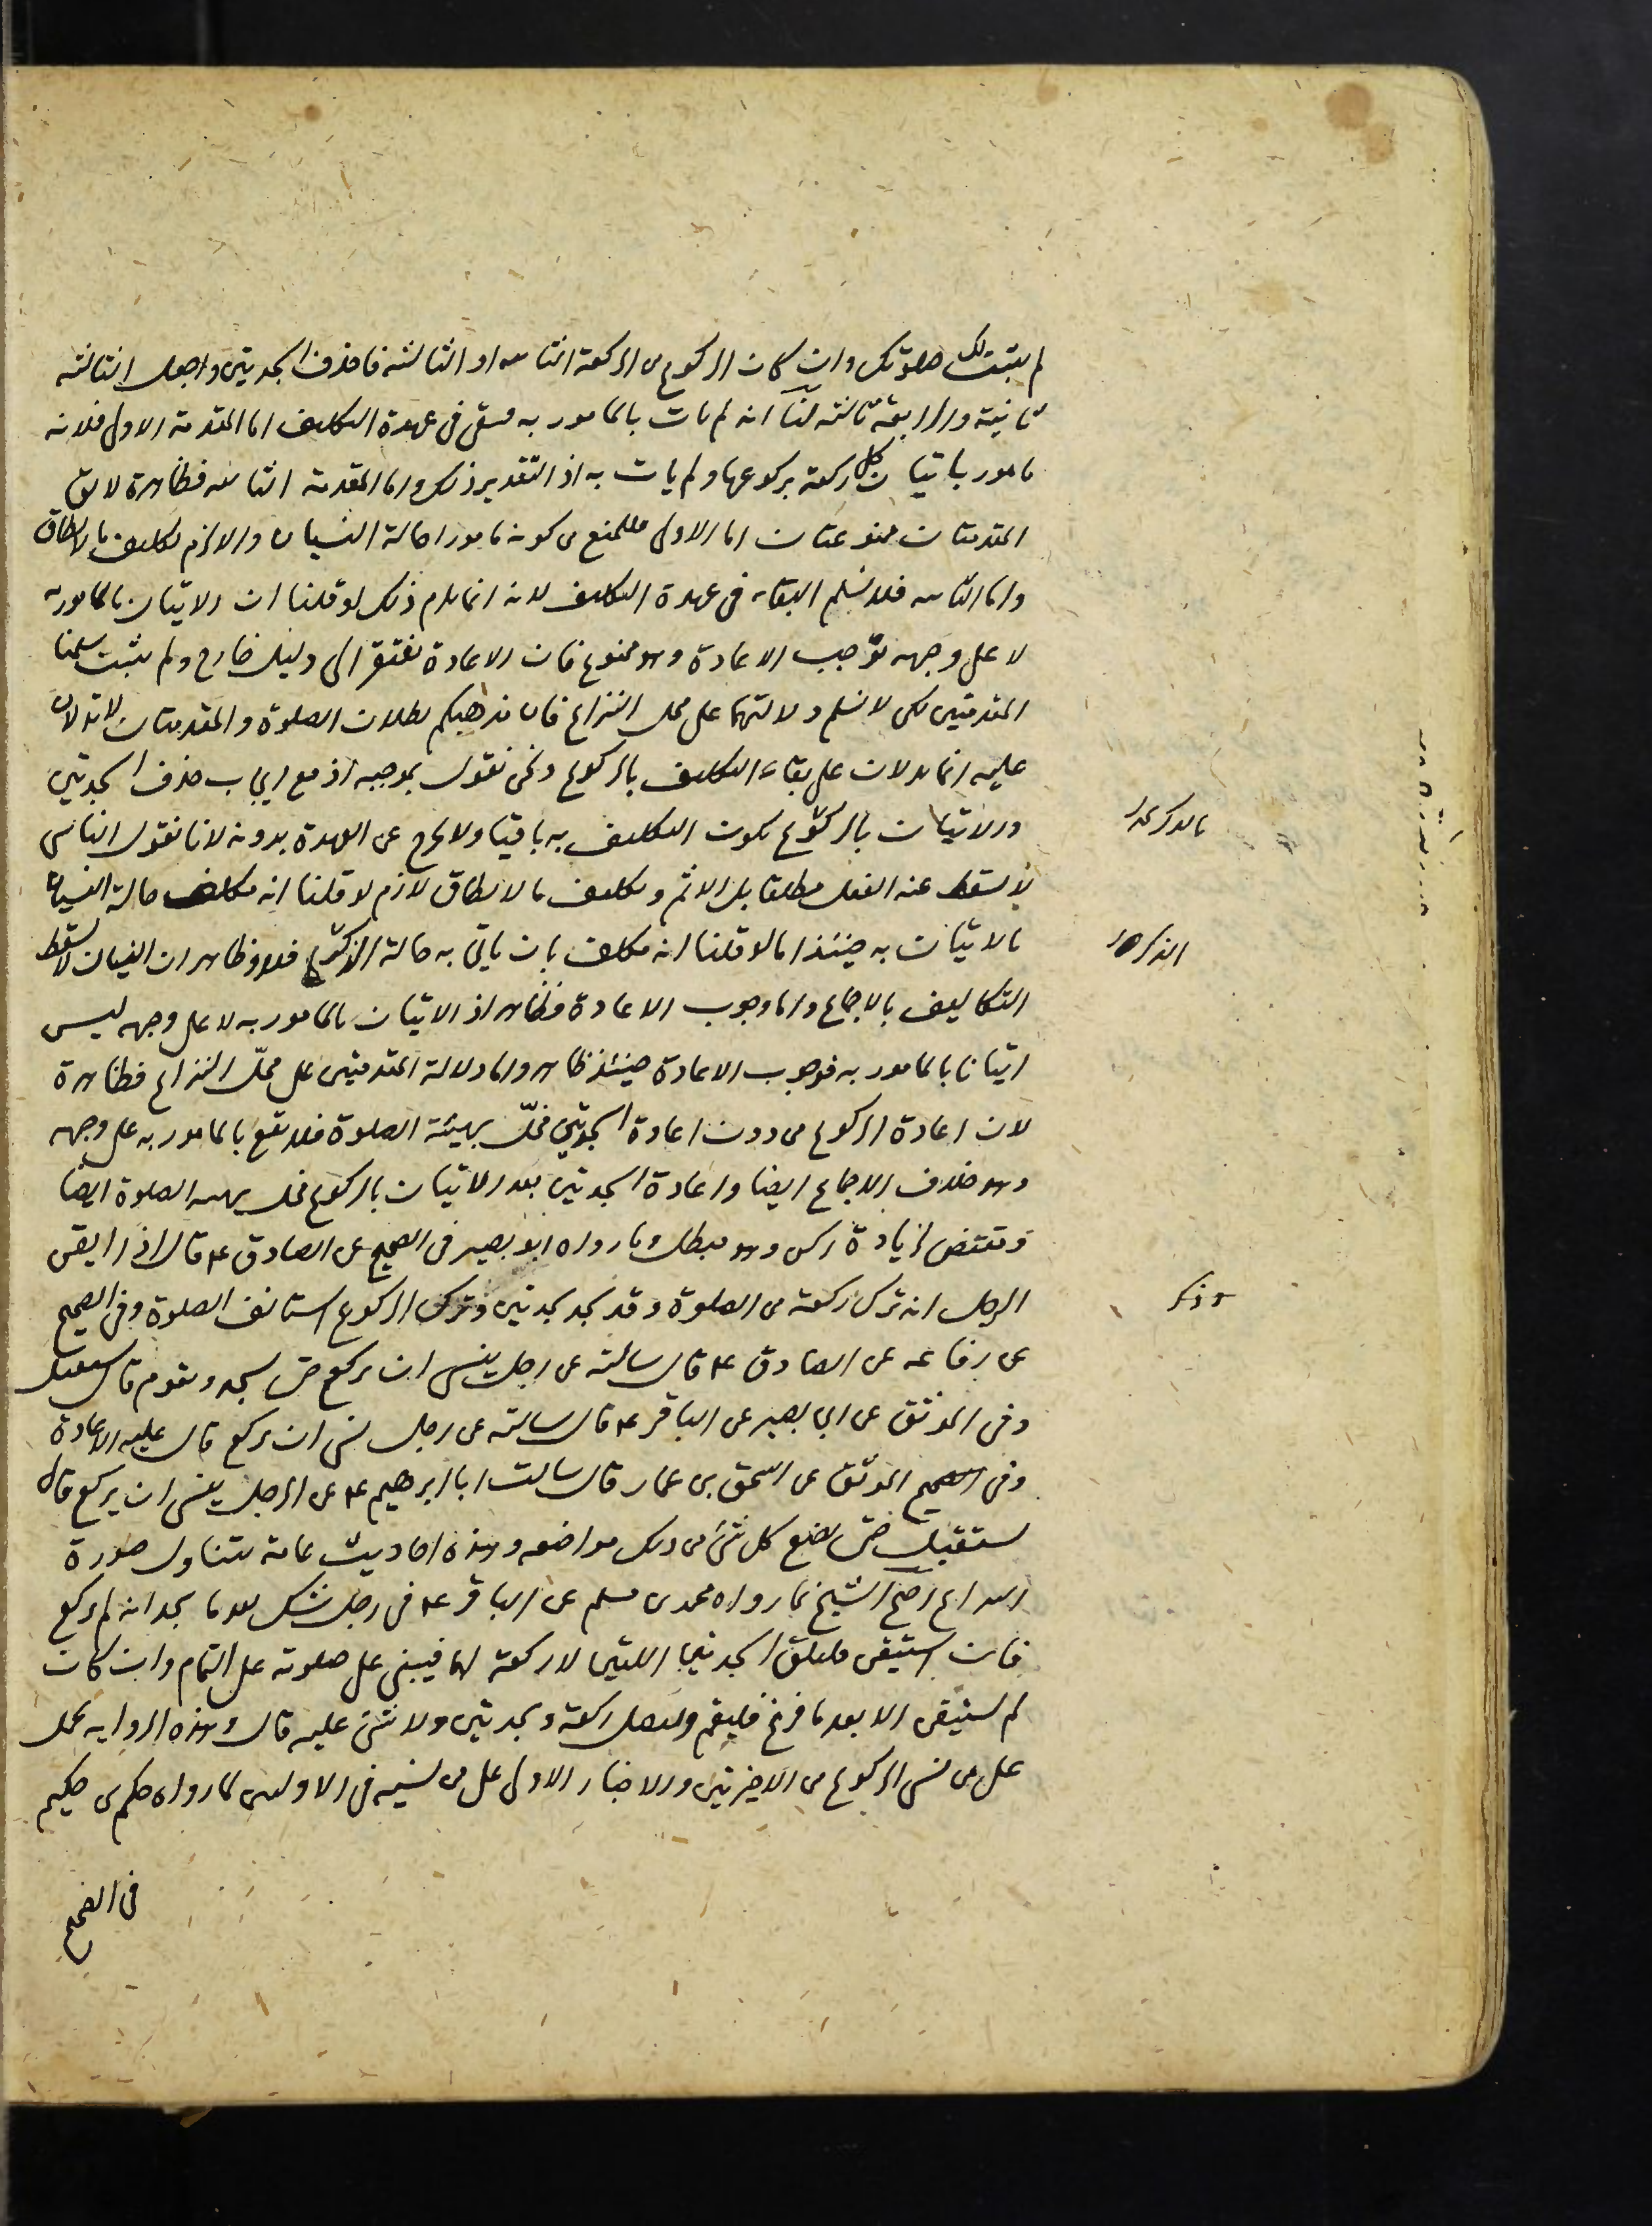 لم يثبت لك صلوتك وان كان الركوع من الركعة الثانية او الثالثة فاحذف السجدتين واجعل الثالثة
ثانية والرابعة ثالثة لنا انه لم يات بالمامور به فيبقى فى عهدة التكليف اما المقدمة الاولى فلانه
مامور باتيان كل ركعة بركوعها ولم يات به اذ التقدير ذلك واما المقدمة الثانية فظاهرة لا يق
المقدمتان ممنوعتان اما الاولى فللمنع من كونه مامورا حالة النسيان والا لزم تكليف ما لا يطاق
واما الثانية فلا نسلم البقاء فى عهدة التكليف لانه انما يلزم ذلك لو قلنا ان الاتيان بالمامور به
لا على وجهه يوجب الاعادة وهو ممنوع فان الاعادة تفتقر الى دليل خارج ولم يثبت سلمنا
المقدمتين لكن لا نسلم دلالتهما على محل النزاع فان مذهبكم بطلان الصلوة والمقدمتان لا تدلان
عليه انما تدلان على بقاء التكليف بالركوع ونحن نقول بموجبه اذ مع ايجاب حذف السجدتين
والاتيان بالركوع يكون التكليف به باقيا ولا يخرج عن العهدة بدونه لانا نقول الناسى
لا يسقط عنه الفعل مطلقا بل الاثم وتكليف ما لا يطاق لازم لو قلنا انه مكلف حالة النسيان
بالاتيان به حينئذ اما لو قلنا انه مكلف بان ياتى به حالة الذكر فلا وظاهر ان النسيان لا يسقط
التكاليف بالاجماع واما وجوب الاعادة فظاهر اذ الاتيان بالمامور به لا على وجهه ليس
اتيانا بالمامور به فوجوب الاعادة حينئذ ظاهر واما دلالة المقدمتين على محل النزاع فظاهرة
لان اعادة الركوع من دون اعادة السجدتين مخل بهيئة الصلوة فلا تقع بالمامور به على وجهه
وهو خلاف الاجماع ايضا واعادة السجدتين بعد الاتيان بالركوع مخل بهيئة الصلوة ايضا
وتقتضى زيادة ركن وهو مبطل وما رواه ابو بصير فى الصحيح عن الصادق ع قال اذا ايقن
الرجل انه ترك ركعة من الصلوة وقد سجد سجدتين وترك الركوع استانف الصلوة وفى الصحيح
عن رفاعه عن الصادق ع قال سالته عن رجل ينسى ان يركع حتى يسجد ويقوم قال يستقبل
وفى الموثق عن ابى بصير عن الباقر ع قال سالته عن رجل نسى ان يركع قال عليه الاعادة
وفى الصحيح الموثق عن اسحق بن عمار قال سالت ابا ابرهيم ع عن الرجل ينسى ان يركع قال
يستقبل حتى يضع كل شئ من ذلك مواضعه وهذه احاديث عامة تتناول صورة
النزاع احتج الشيخ بما رواه محمد بن مسلم عن الباقر ع فى رجل شك بعد ما سجد انه لم يركع
فان استيقن فليلق السجدتين اللتين لا ركعة لهما فيبنى على صلوته على التمام وان كان
لم يستيقن الا بعد ما فرغ فليقم وليصل ركعة وسجدتين ولا شئ عليه قال وهذه الرواية تحمل
على من نسى الركوع من الاخيرتين والاخبار الاولى على من نسيه فى الاوليين لما رواه حكم بن حكيم
فى الصحيح
الذكر
وذكر